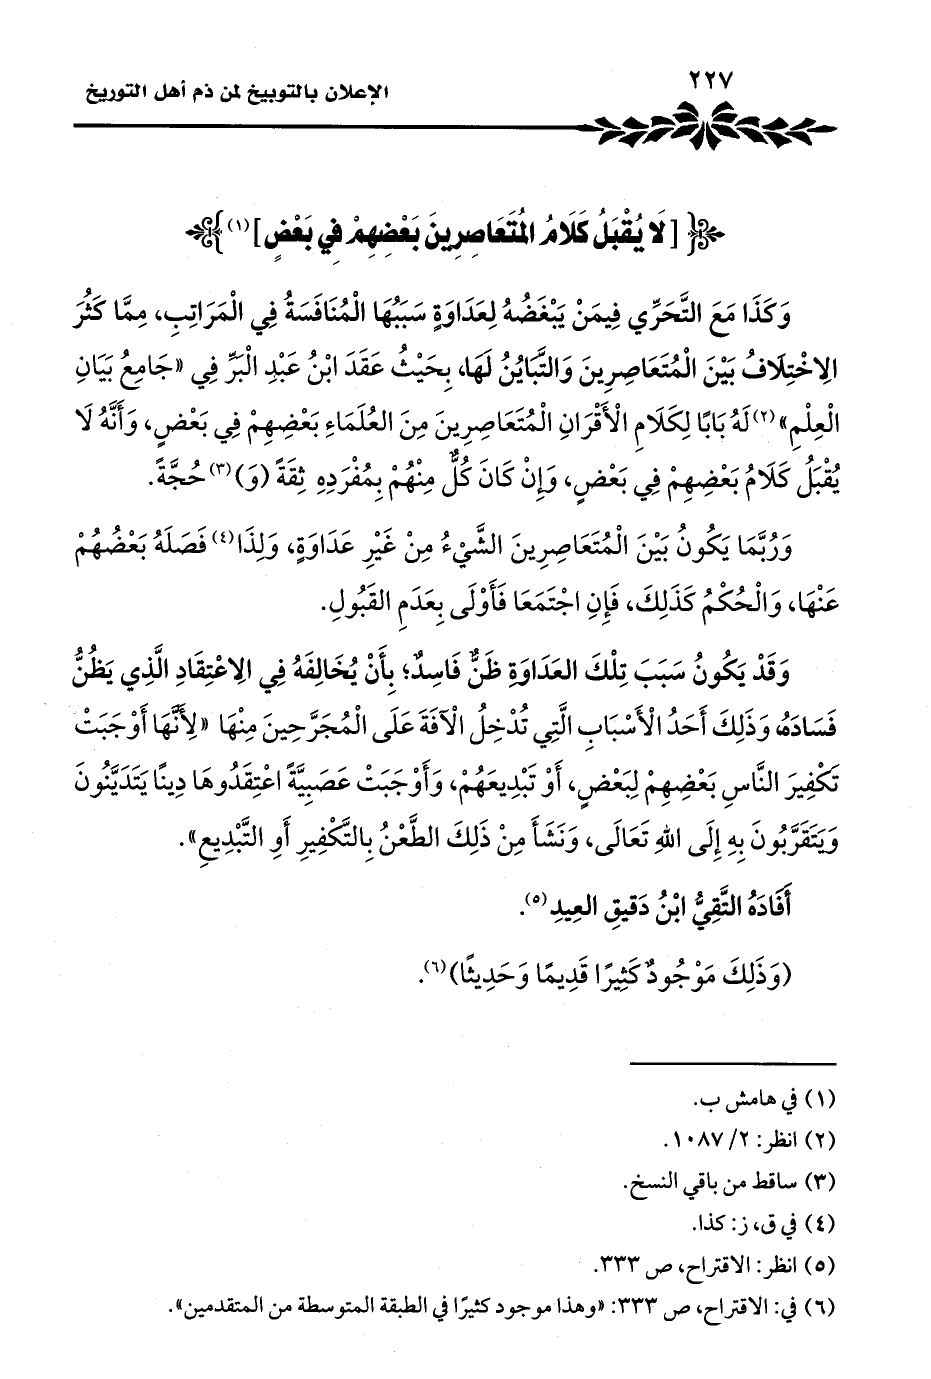 ٢٢٧
الإعلان بالتوبيخ لمن ذم أهل التوريخ
[لَا يُقْبَلُ كَلَامُ المُتَعَاصِرِينَ بَعْضِهِمْ فِي بَعْضٍ] (١)
وَكَذَا مَعَ التَّحَرِّي فِيمَنْ يَبْغَضُهُ لِعَدَاوَةٍ سَبَبُهَا الْمُنَافَسَةُ فِي الْمَرَاتِبِ، مِمَّا كَثُرَ
الِاخْتِلَافُ بَيْنَ الْمُتَعَاصِرِينَ وَالتَّبَايُنُ لَهَا، بِحَيْثُ عَقَدَ ابْنُ عَبْدِ الْبَرِّ فِي «جَامِعُ بَيَانِ
الْعِلْمِ»(٢) لَهُ بَابًا لِكَلَامِ الْأَقْرَانِ الْمُتَعَاصِرِينَ مِنَ العُلَمَاءِ بَعْضِهِمْ فِي بَعْضٍ، وَأَنَّهُ لَا
يُقْبَلُ كَلَامُ بَعْضِهِمْ فِي بَعْضٍ، وَإِنْ كَانَ كُلٌّ مِنْهُمْ بِمُفْرَدِهِ ثِقَةً (وَ)(٣) حُجَّةً.
وَرُبَّمَا يَكُونُ بَيْنَ الْمُتَعَاصِرِينَ الشَّيْءُ مِنْ غَيْرِ عَدَاوَةٍ، وَلِذَا(٤) فَصَلَهُ بَعْضُهُمْ
عَنْهَا، وَالْحُكْمُ كَذَلِكَ، فَإِنِ اجْتَمَعَا فَأَوْلَى بِعَدَمِ القَبُولِ.
وَقَدْ يَكُونُ سَبَبَ تِلْكَ العَدَاوَةِ ظَنٌّ فَاسِدٌ؛ بِأَنْ يُخَالِفَهُ فِي الِاعْتِقَادِ الَّذِي يَظُنُّ
فَسَادَهُ، وَذَلِكَ أَحَدُ الْأَسْبَابِ الَّتِي تُدْخِلُ الْآفَةَ عَلَى الْمُجَرِّحِينَ مِنْهَا «لِأَنَّهَا أَوْجَبَتْ
تَكْفِيرَ النَّاسِ بَعْضِهِمْ لِبَعْضٍ، أَوْ تَبْدِيعَهُمْ، وَأَوْجَبَتْ عَصَبِيَّةً اعْتَقَدُوهَا دِينًا يَتَدَيَّنُونَ
وَيَتَقَرَّبُونَ بِهِ إِلَى اللهِ تَعَالَى، وَنَشَأَ مِنْ ذَلِكَ الطَّعْنُ بِالتَّكْفِيرِ أَوِ التَّبْدِيعِ».
أَفَادَهُ التَّقِيُّ ابْنُ دَقِيقِ العِيدِ(٥).
(وَذَلِكَ مَوْجُودٌ كَثِيرًا قَدِيمًا وَحَدِيثًا)(٦).
(١) في هامش ب.
(٢) انظر: ٢/ ١٠٨٧.
(٣) ساقط من باقي النسخ.
(٤) في ق، ز: كذا.
(٥) انظر: الاقتراح، ص ٣٣٣.
(٦) في: الاقتراح، ص ٣٣٣: «وهذا موجود كثيرًا في الطبقة المتوسطة من المتقدمين».